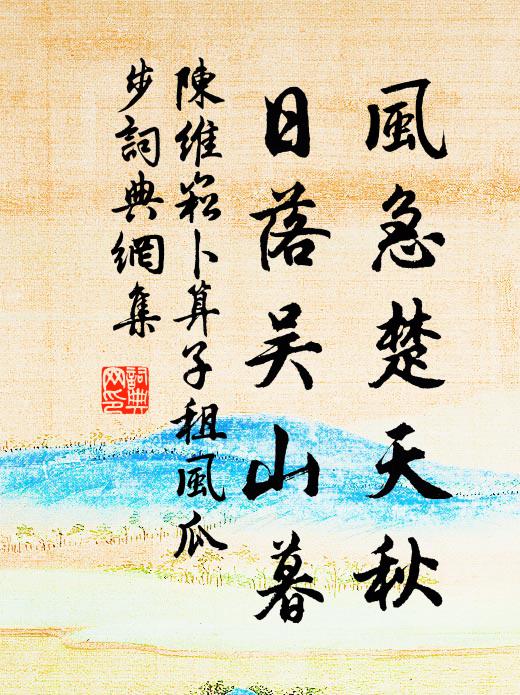 風急楚天秋
日落吳山暮
陳維崧卜算子祖風瓜
步詞典網集
詞典網印